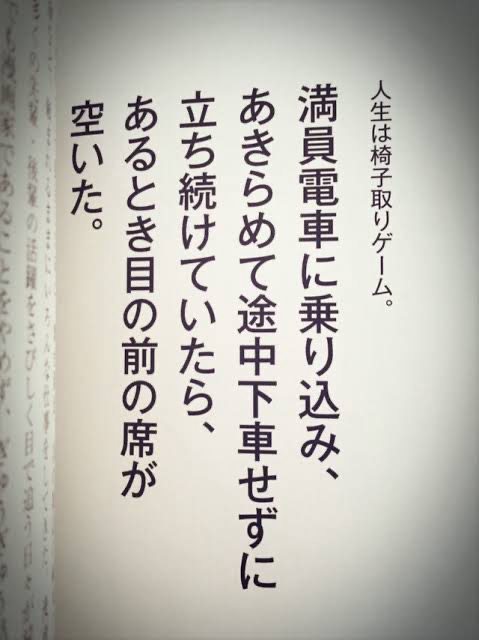 人生は椅子取りゲーム。
満員電車に乗り込み、
あきらめて途中下車せずに
立ち続けていたら、
あるとき目の前の席が
空いた。